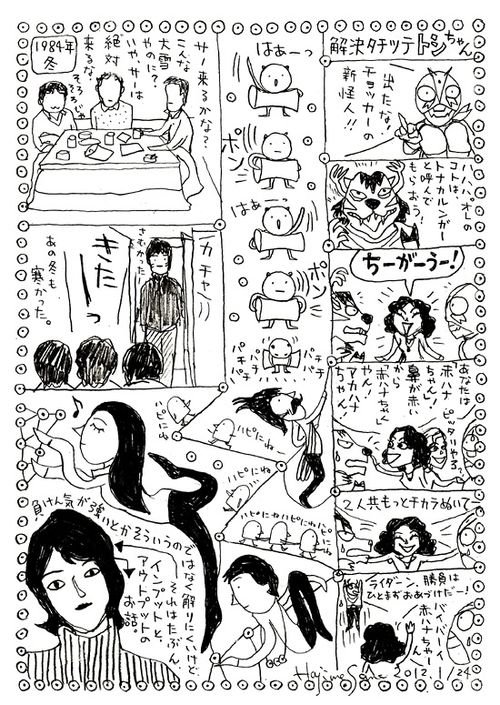 解決タチツテトシちゃん
出たな!
チョッカーの
新怪人!!
ハハハ、オレの
コトは
トナカルンガー
と呼んで
もらおう!
ちーがーうー!
あなたは
ピッタリやろ。
鼻が赤い
から
赤ハナちゃん
や。
アカハナ
ちゃん!
2人共もっとチカラぬいてー
ライダーン、勝負は
ひとまずおあづけだー!
バイバーイ
赤ハナちゃーん!
はぁーっ
ポン
はぁーっ
ポン
パチ
パチ
パチ
パチ
1984年
冬
サノ来るかな?
こんな
大雪
やのに?
いや、サーは
絶対
来るな。
カチャ
さむかったー
きたーっ
あの冬も
寒かった。
ハピにね
ハピにね
ハピにね
ハピにねハピにねハピにね
負けん気が強いとかそういうのではなく解りにくいけど、
それはたぶん
インプットと、
アウトプットの
お話。
Hajime Sano
2012.1/24